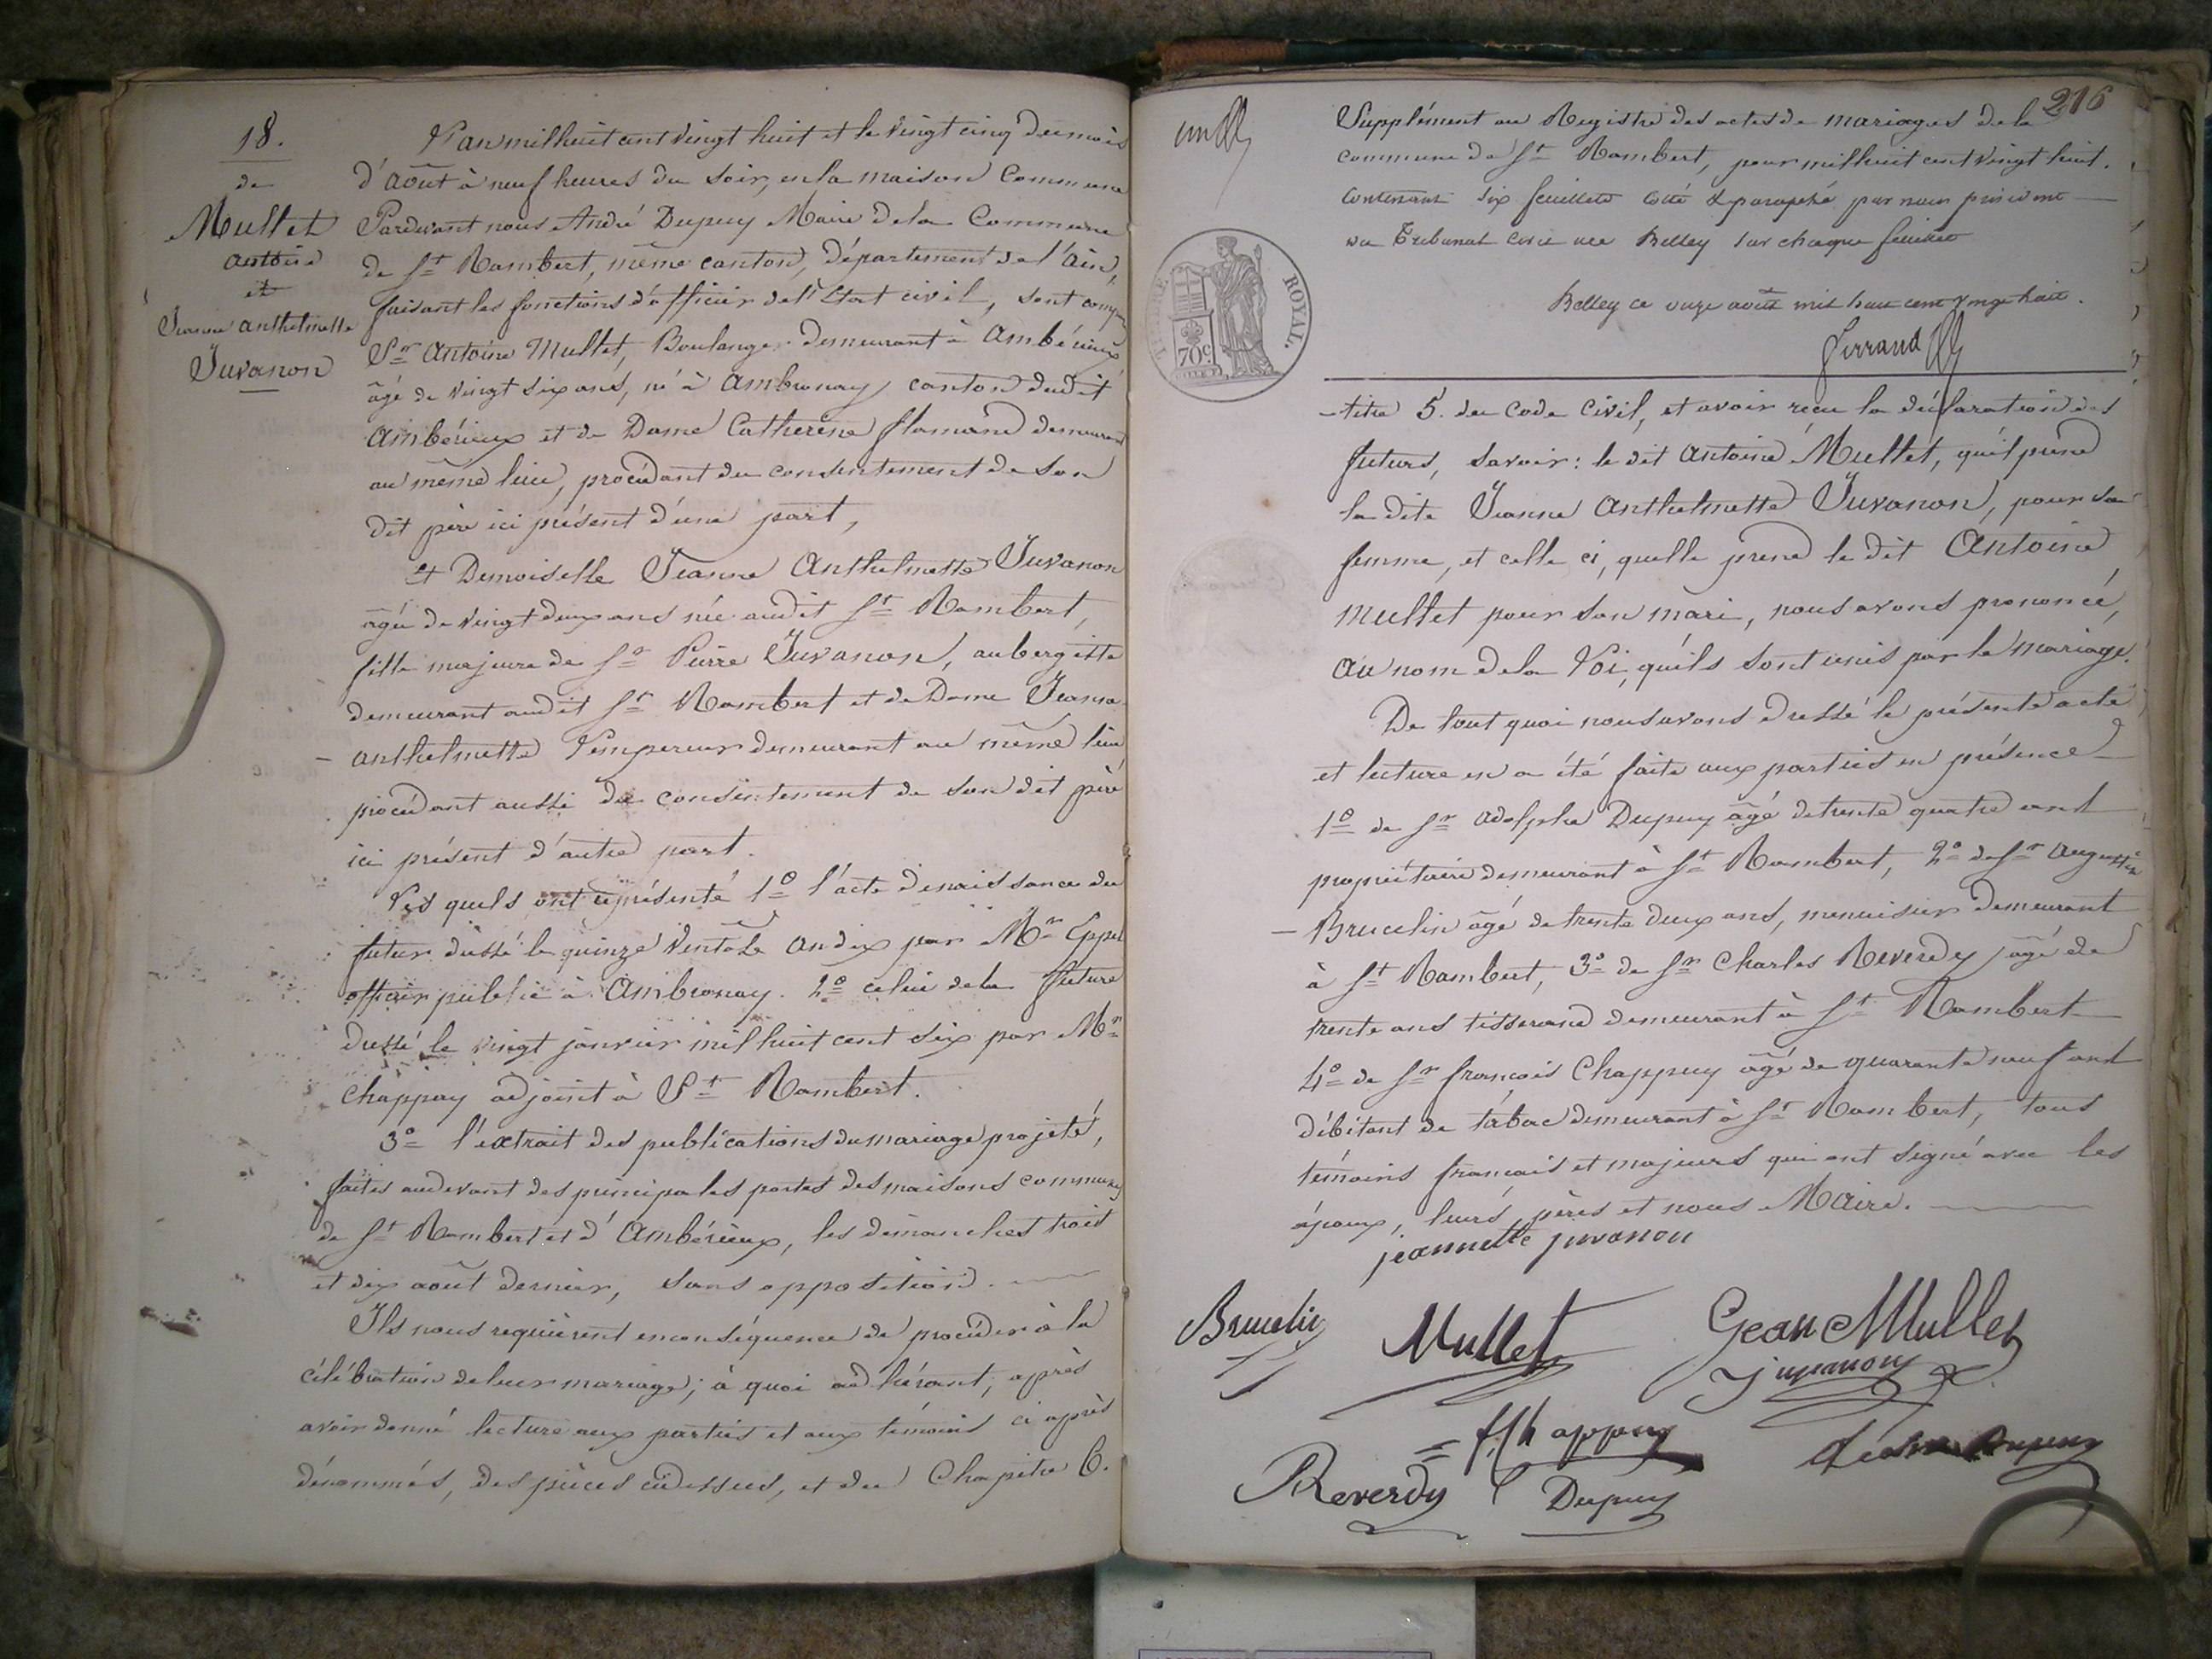 18.
de
Mullet
antoine
et
Jeanne anthelmette
Juvanon
L'an mil huit cent vingt huit et le vingt cinq du mois
d'août à neuf heures du soir, en la maison Commune
Pardevant nous André Dupuy Maire de la Commune
de St Rambert, même canton, département de l'Ain,
faisant les fonctions d'officier de l'Etat civil, sont comparu
Sr Antoine Mullet, Boulanger demeurant à Ambérieux
âgé de vingt six ans, né à Ambronay canton dudit
Ambérieux et de Dame Catherine flamand demeurant
au même lieu, procédant du consentement de son
dit père ici présent d'une part,
et Demoiselle Jeanne Anthelmette Juvanon
âgée de vingt deux ans née audit St Rambert,
fille majeure de Sr Pierre Juvanon, aubergiste
demeurant audit St Rambert et de Dame Jeanne
anthelmette Lempereur demeurant au même lieu
procédant aussi du consentement de son dit père
ici présent d'autre part.
Les quels ont représenté 1o l'acte de naissance du
futur dressé le quinze Ventose an dix par Mr
officier public à Ambronay. 2o celui de la future
dressé le vingt janvier mil huit cent six par Mr
Chappuy adjoint à St Rambert.
3o l'extrait des publications du mariage projeté,
faites audevant des principales portes des maisons communes
de St Rambert et d'Ambérieux, les dimanches trois
et dix août dernier, sans opposition.
Ils nous requièrent en conséquence de procéder à la
célébration de leur mariage; à quoi adhérant, après
avoir donné lecture aux parties et aux témoins ci après
dénommés, des pièces cidessus, et du Chapitre 6.
216
Supplément au Registre des actes de mariages de la
commune de St Rambert, pour mil huit cent vingt huit.
contenant six feuillets coté & paraphé par nous président
du Tribunal civil de Belley sur chaque feuillet
Belley ce onze août mil huit cent vingt huit.
Ferrand
TIMBRE ROYAL.
70c
titre 5. du Code Civil, et avoir reçu la déclaration des
futurs, savoir: le dit Antoine Mullet, qu'il prend
la dite Jeanne Anthelmette Juvanon, pour sa
femme, et celle ci, quelle prend le dit Antoine
Mullet pour son mari, nous avons prononcé,
au nom de la Loi, qu'ils sont unis par le mariage.
De tout quoi nous avons dressé le présente acte
et lecture en a été faite aux parties en présence
1o de Sr Adolphe Dupuy âgé de trente quatre ans
propriétaire demeurant à St Rambert, 2o de Sr Augustin
Brucelin âgé de trente deux ans, menuisier demeurant
à St Rambert, 3o de Sr Charles Reverdy âgé de
trente ans tisserand demeurant à St Rambert
4o de Sr françois Chappuy âgé de quarante neuf ans
débitant de tabac demeurant à St Rambert, tous
témoins français et majeurs qui ont signé avec les
époux, leurs pères et nous Maire.
jeannette juvanon
Brucelin
Mullet
Gean Mullet
Juvanon
f. Chappuy
Reverdy
Dupuy
Dupuy